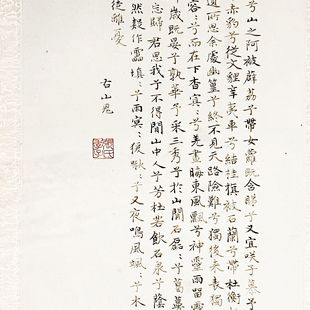 兮山之阿被薜荔兮帶女蘿既含睇兮又宜咲子慕予
赤豹兮從文貍辛夷車兮結桂旗被石蘭兮帶杜衡
遺所思余處幽篁兮終不見天路險難兮獨後來表獨
容〻兮而在下杳冥〻兮羌晝晦東風飄兮神靈雨留靈
歲既晏兮孰華予采三秀兮於山間石磊〻兮葛蔓
忘歸君思我兮不得閒山中人兮芳杜若飲石泉兮蔭
然疑作靁填〻兮雨冥〻猨啾〻兮又夜鳴風颯〻兮木
徒離憂
右山鬼